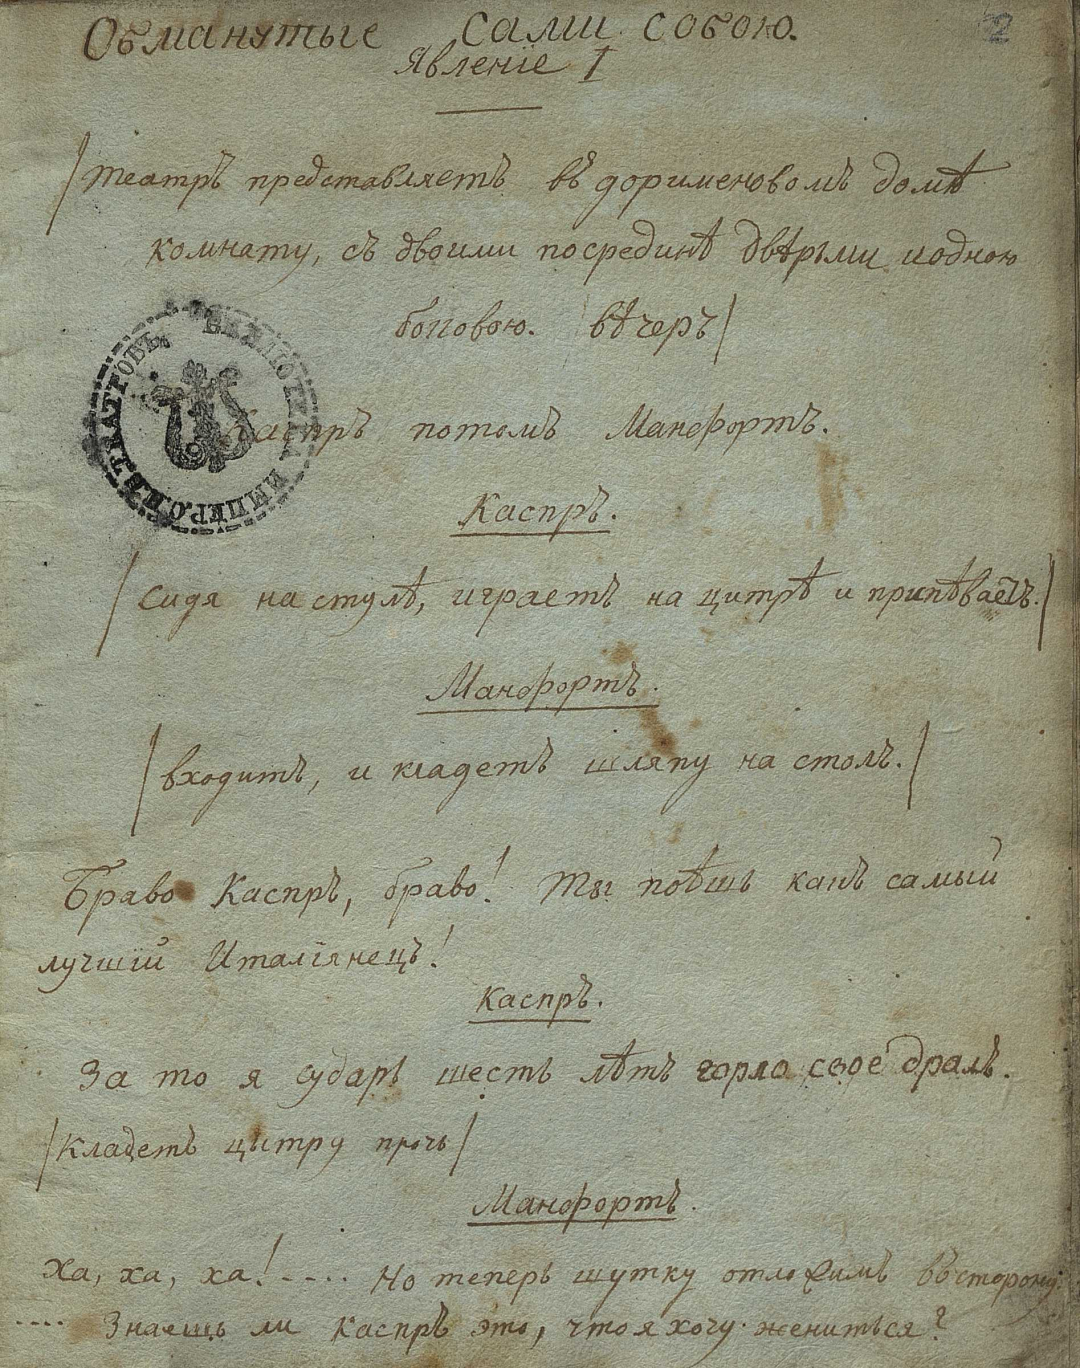 Обманутые сами собою.
2
Явленіе I
/театръ представляетъ въ дорименовомъ домѣ
комнату, съ двоими посрединѣ двѣрьми и одною
боковою. вѣчеръ/
БИБЛІОТЕКА ИМПЕР. С.П.Б. ТЕАТРОВЪ
Каспръ потомъ Манофортъ.
Каспръ.
/сидя на стулѣ, играетъ на цитрѣ и припѣваетъ./
Манофортъ.
/входитъ, и кладетъ шляпу на столъ./
Браво Каспръ, браво! Ты поѣшь какъ самый
лучшій Италіянецъ!
Каспръ.
За то я сударь шесть лѣтъ горло свое дралъ.
/Кладетъ цытру прочь/
Манофортъ.
Ха, ха, ха! - . . . Но теперь шутку отложимъ въ сторону.
.... Знаешь ли Каспръ это, что я хочу жениться?